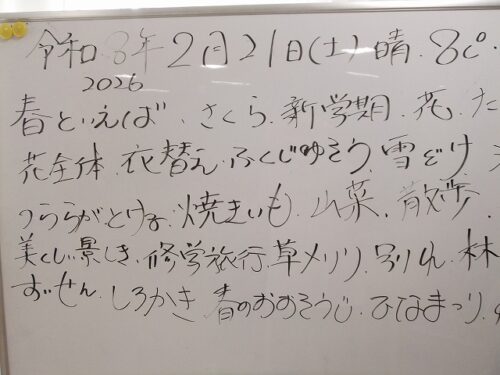 令和8年2月21日(土)晴.8℃.
2026
春といえば、さくら.新学期.花.た
花全体.衣替え.ふくじゅそう.雪どけ
つららがとける.焼きいも.山菜.散歩.
美くしい景しき.修学旅行.草メリリ.別りん.林
すいせん.しろかき 春のおおそうじ.ひなまつり.